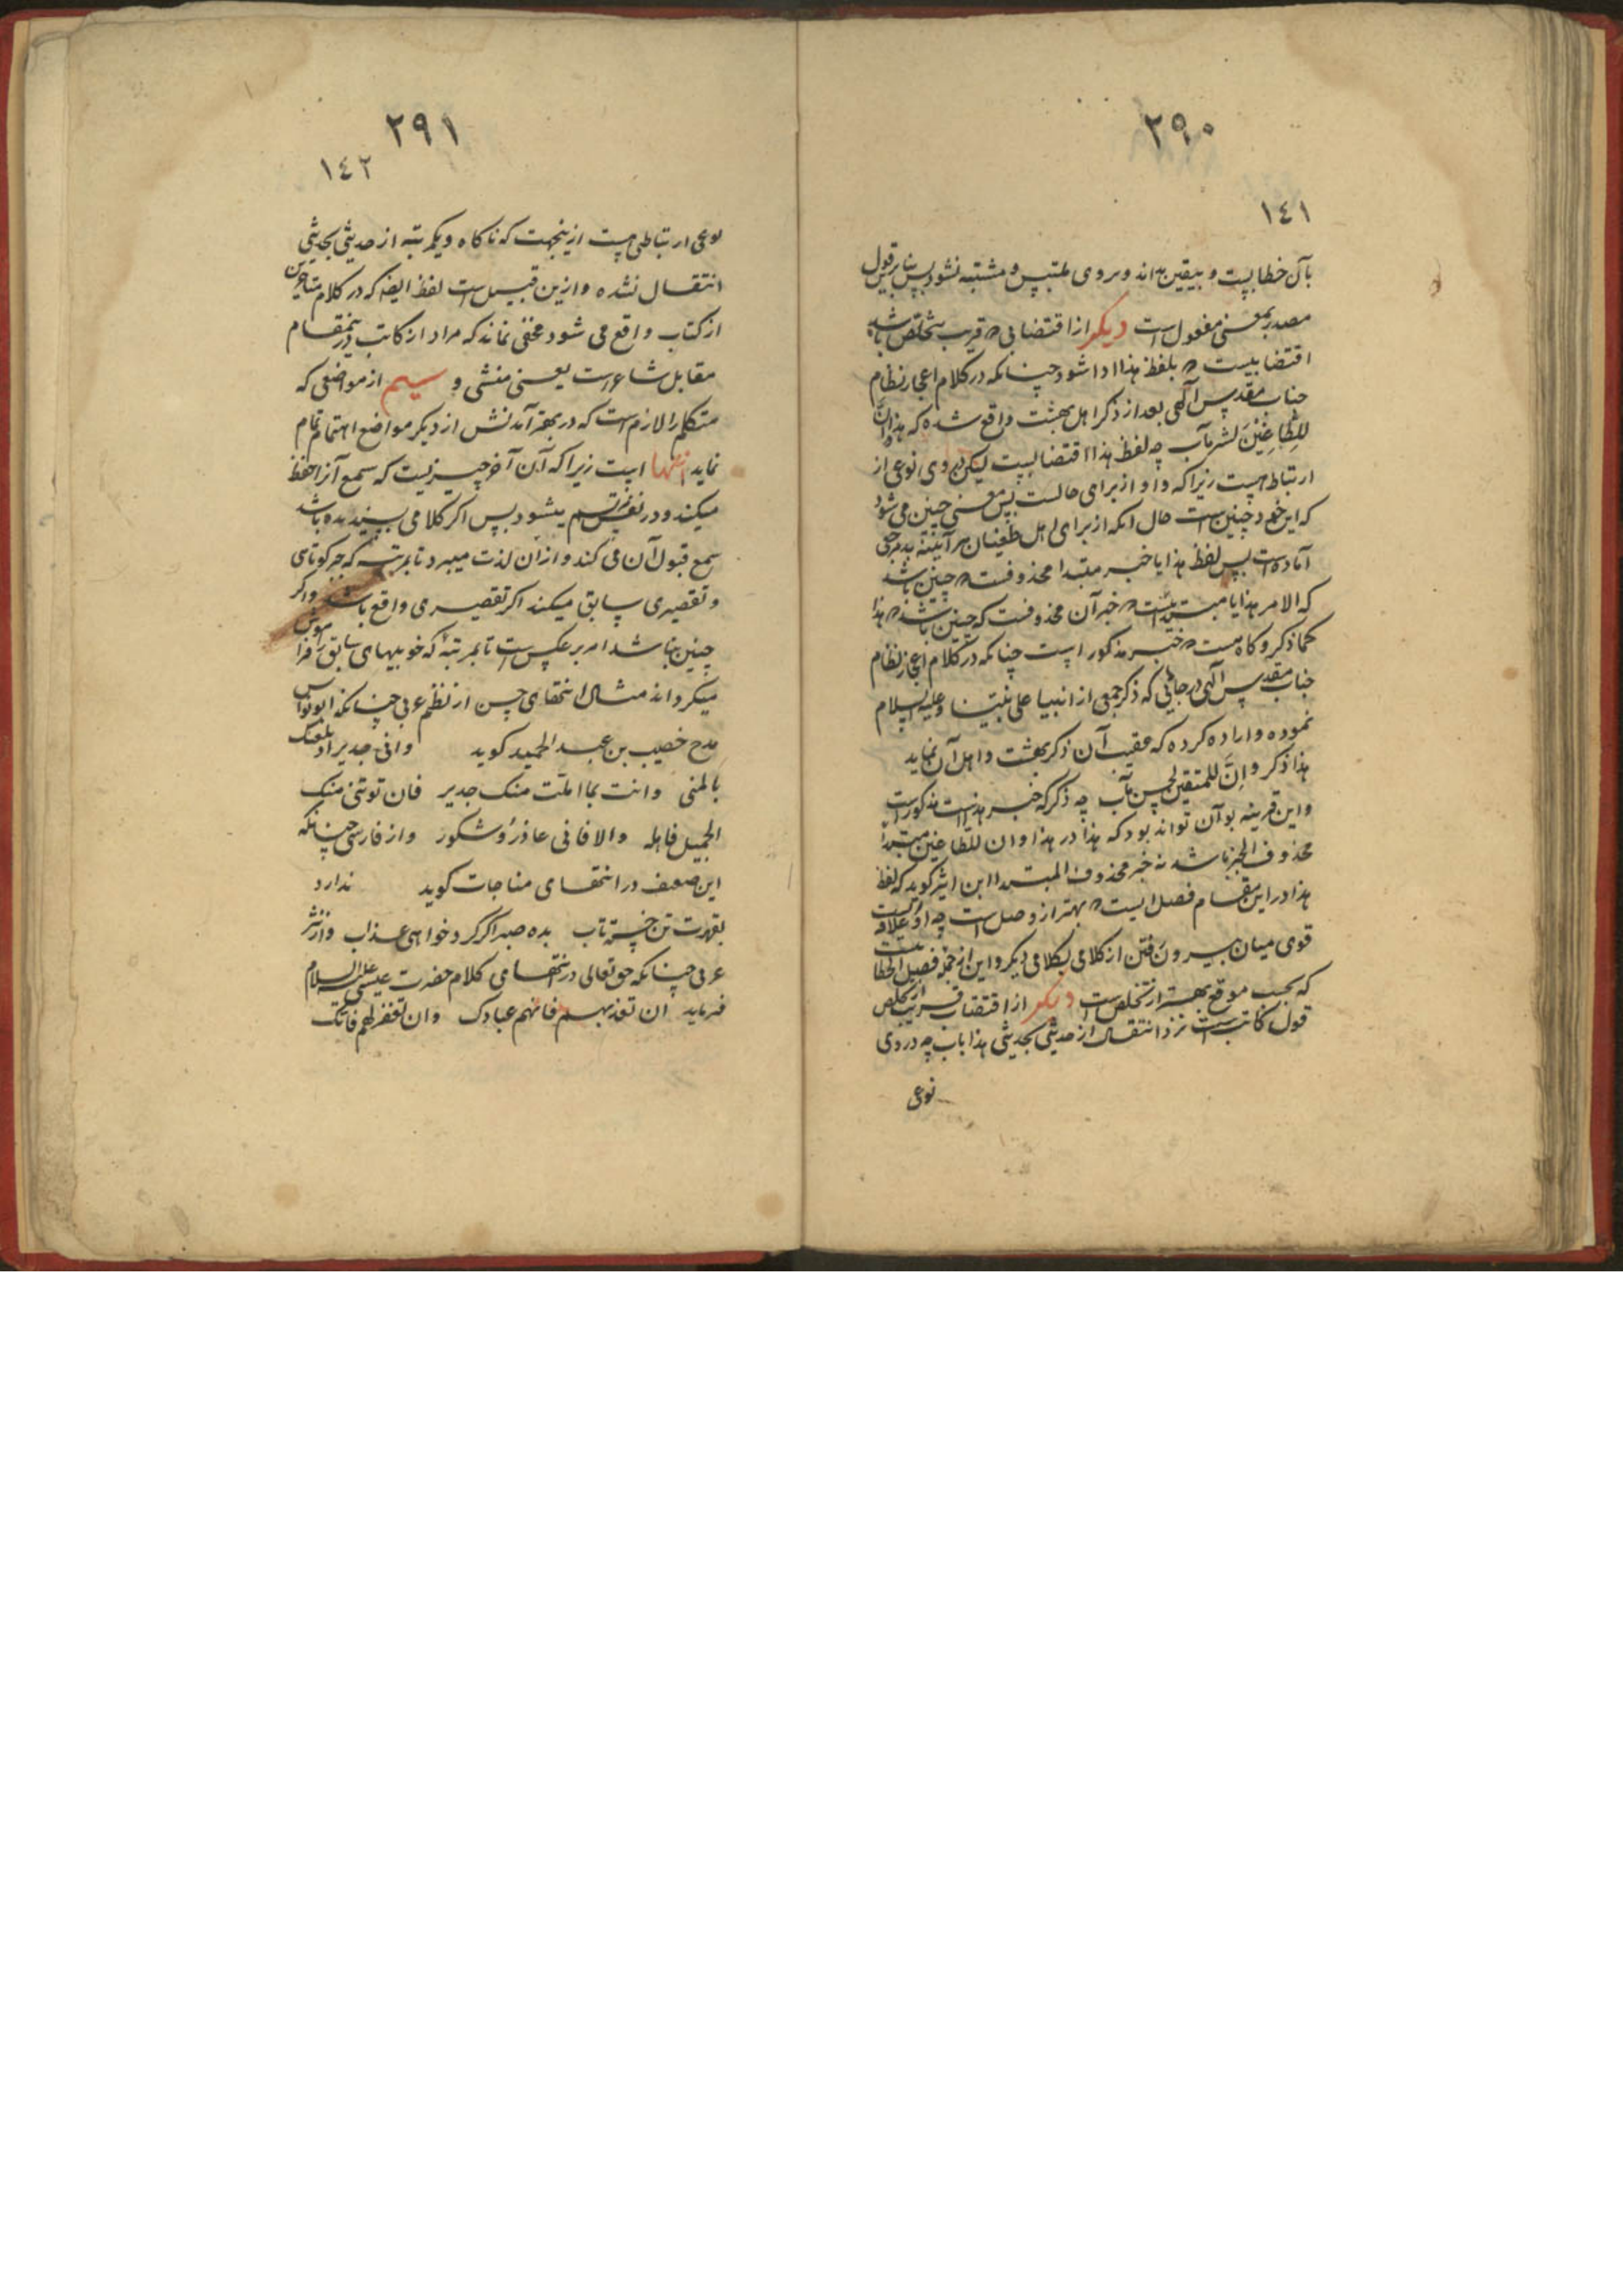 ۲۹۰
۱٤۱
بآن خطابیست و بیقین داند و بروی ملتبس و مشتبه نشود پس بنابر قول
مصدر بمعنی مفعول است دیگر از اقتضابی که قریب بتخلص باشد
اقتضابیست که بلفظ هذا ادا شود چنانکه در کلام اعجاز نظام
جناب مقدس آلهی بعد از ذکر اهل بهشت واقع شده که هذا وان
للطاغین لشر مآب چه لفظ هذا اقتضابیست لیکن در وی نوعی از
ارتباط هست زیرا که واو از برای حالست پس معنی چنین می شود
که این خود چنین است حال آنکه از برای اهل طغیان هر آینه بد مرجعی
آماده است پس لفظ هذا یا خبر مبتدا محذوفست که چنین باشد
که الامر هذا یا مبتداییست که خبر آن محذوفست که چنین باشد که هذا
کما ذکر و گاه هست که خبر مذکور است چنانکه در کلام اعجاز نظام
جناب مقدس آلهی در جائی که ذکر جمعی از انبیا علی نبینا وعلیه السلام
نموده و اراده کرده که عقیب آن ذکر بهشت و اهل آن نماید
هذا ذکر و اِنَّ للمتقین لحسن مآب چه ذکر که خبر هذاست مذکور است
و این قرینه بر آن تواند بود که هذا در هذا وان للطاغین مبتدأ
محذوف الخبر باشد نه خبر محذوف المبتدا ابن اثیر گوید که لفظ
هذا در این مقام فصل است که بهتر از وصل است چه او علاقه ایست
قوی میان بیرون رفتن از کلامی بکلامی دیگر و این از جمله فصل الخطابیست
که بحسب موقع بهتر از تخلص است دیگر از اقتضاب قریب از تخلص
قول کاتب است نزد انتقال از حدیثی بحدیثی هذا باب چه در وی
نوعی
۲۹۱
۱٤۲
نوعی ارتباطی هست ازینجهت که ناگاه و یکمرتبه از حدیثی بحدیثی
انتقال نشده و ازین قبیل است لفظ ایضا که در کلام متأخرین
از کتاب واقع می شود مخفی نماند که مراد از کاتب درینمقام
مقابل شاعر است یعنی منشی و سیم از مواضعی که
متکلم را لازم است که در بهتر آمدنش از دیگر مواضع اهتمام تمام
نماید انتهاست زیرا که آن آخر چیزیست که سمع آنرا حفظ
میکند و در نفس مرتسم میشود پس اگر کلامی پسندیده باشد
سمع قبول آن می کند و از آن لذت میبرد تا بمرتبه که جبر کوتاهی
و تقصیری سابق میکند اگر تقصیری واقع باشد و اگر
چنین نباشد امر بر عکس است تا بمرتبهٔ که خوبیهای سابق را فراموش
میگرداند مثال انتهای حسن از نظم عربی چنانکه ابونواس
مدح خصیب بن عبد الحمید گوید وانی جدیر اذ بلغتک
بالمنی وانت بما املت منک جدیر فان تولنی منک
الجمیل فاهله والا فانی عاذر وشکور و از فارسی چنانکه
این ضعیف در انتهای مناجات گوید ندارد
بقهرت تن خسته تاب بده صبر اگر کرد خواهی عذاب و از نثر
عربی چنانکه حق تعالی در انتهای کلام حضرت عیسی علیه السلام
فرماید ان تعذبهم فانهم عبادک وان تغفر لهم فانک